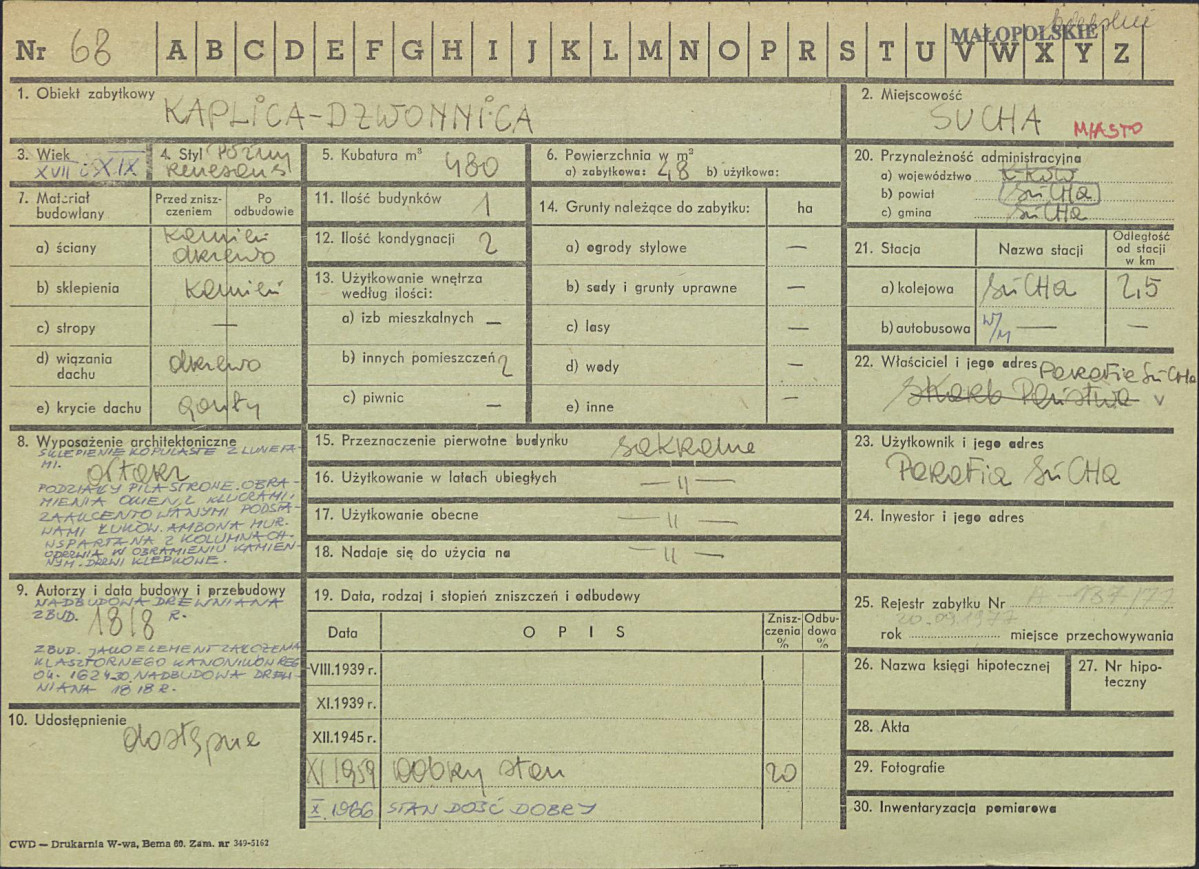 Nr 68 A B C D E F G H I J K L M N O P R S T U V W X Y Z
MAŁOPOLSKIE
1. Obiekt zabytkowy
KAPLICA-DZWONNICA
2. Miejscowość
SUCHA MIASTO
3. Wiek
XVII i XIX
4. Styl późny
renesans
5. Kubatura m³ 480
6. Powierzchnia w m²
a) zabytkowa: 48 b) użytkowa:
7. Materiał budowlany
Przed zniszczeniem
Po odbudowie
a) ściany kamień
drzewo
b) sklepienia kamień
c) stropy —
d) wiązania dachu drzewo
e) krycie dachu gonty
8. Wyposażenie architektoniczne
SKLEPIENIE KOPULASTE Z LUNETA-
MI.
ołtarz
PODZIAŁY PILASTROWE. OBRA-
MIENIA OKIEN Z KLUCZAMI,
ZAAKCENTOWANYMI PODSTA-
WAMI ŁUKÓW. AMBONA MUR.
WSPARTA NA 2 KOLUMNACH.
ODRZWIA W OBRAMIENIU KAMIEN-
NYM. DRZWI KLEPKOWE.
9. Autorzy i data budowy i przebudowy
NADBUDOWA DREWNIANA
ZBUD. 1818 R.
ZBUD. JAKO ELEMENT ZAŁOŻENIA
KLASZTORNEGO KANONIKÓW REG.
OK. 1624-30. NADBUDOWA DREW-
NIANA 1818 R.
10. Udostępnienie
dostępne
11. Ilość budynków 1
12. Ilość kondygnacji 2
13. Użytkowanie wnętrza według ilości:
a) izb mieszkalnych —
b) innych pomieszczeń 2
c) piwnic —
14. Grunty należące do zabytku: ha
a) ogrody stylowe —
b) sady i grunty uprawne —
c) lasy —
d) wody —
e) inne —
15. Przeznaczenie pierwotne budynku sakralne
16. Użytkowanie w latach ubiegłych — „ —
17. Użytkowanie obecne — „ —
18. Nadaje się do użycia na — „ —
19. Data, rodzaj i stopień zniszczeń i odbudowy
Data OPIS Zniszczenia % Odbudowa %
VIII.1939 r.
XI.1939 r.
XII.1945 r.
XI 1959 Dobry stan 20
X. 1966 STAN DOŚĆ DOBRY
20. Przynależność administracyjna
a) województwo Kraków
b) powiat SUCHA
c) gmina SUCHA
21. Stacja Nazwa stacji Odległość od stacji w km
a) kolejowa SUCHA 2,5
b) autobusowa w/m — —
22. Właściciel i jego adres Parafia SUCHA
Skarb Państwa v
23. Użytkownik i jego adres
Parafia SUCHA
24. Inwestor i jego adres
25. Rejestr zabytku Nr A 137/77
20.09.1977
rok miejsce przechowywania
26. Nazwa księgi hipotecznej
27. Nr hipoteczny
28. Akta
29. Fotografie
30. Inwentaryzacja pomiarowa
CWD — Drukarnia W-wa, Bema 60. Zam. nr 349-5162